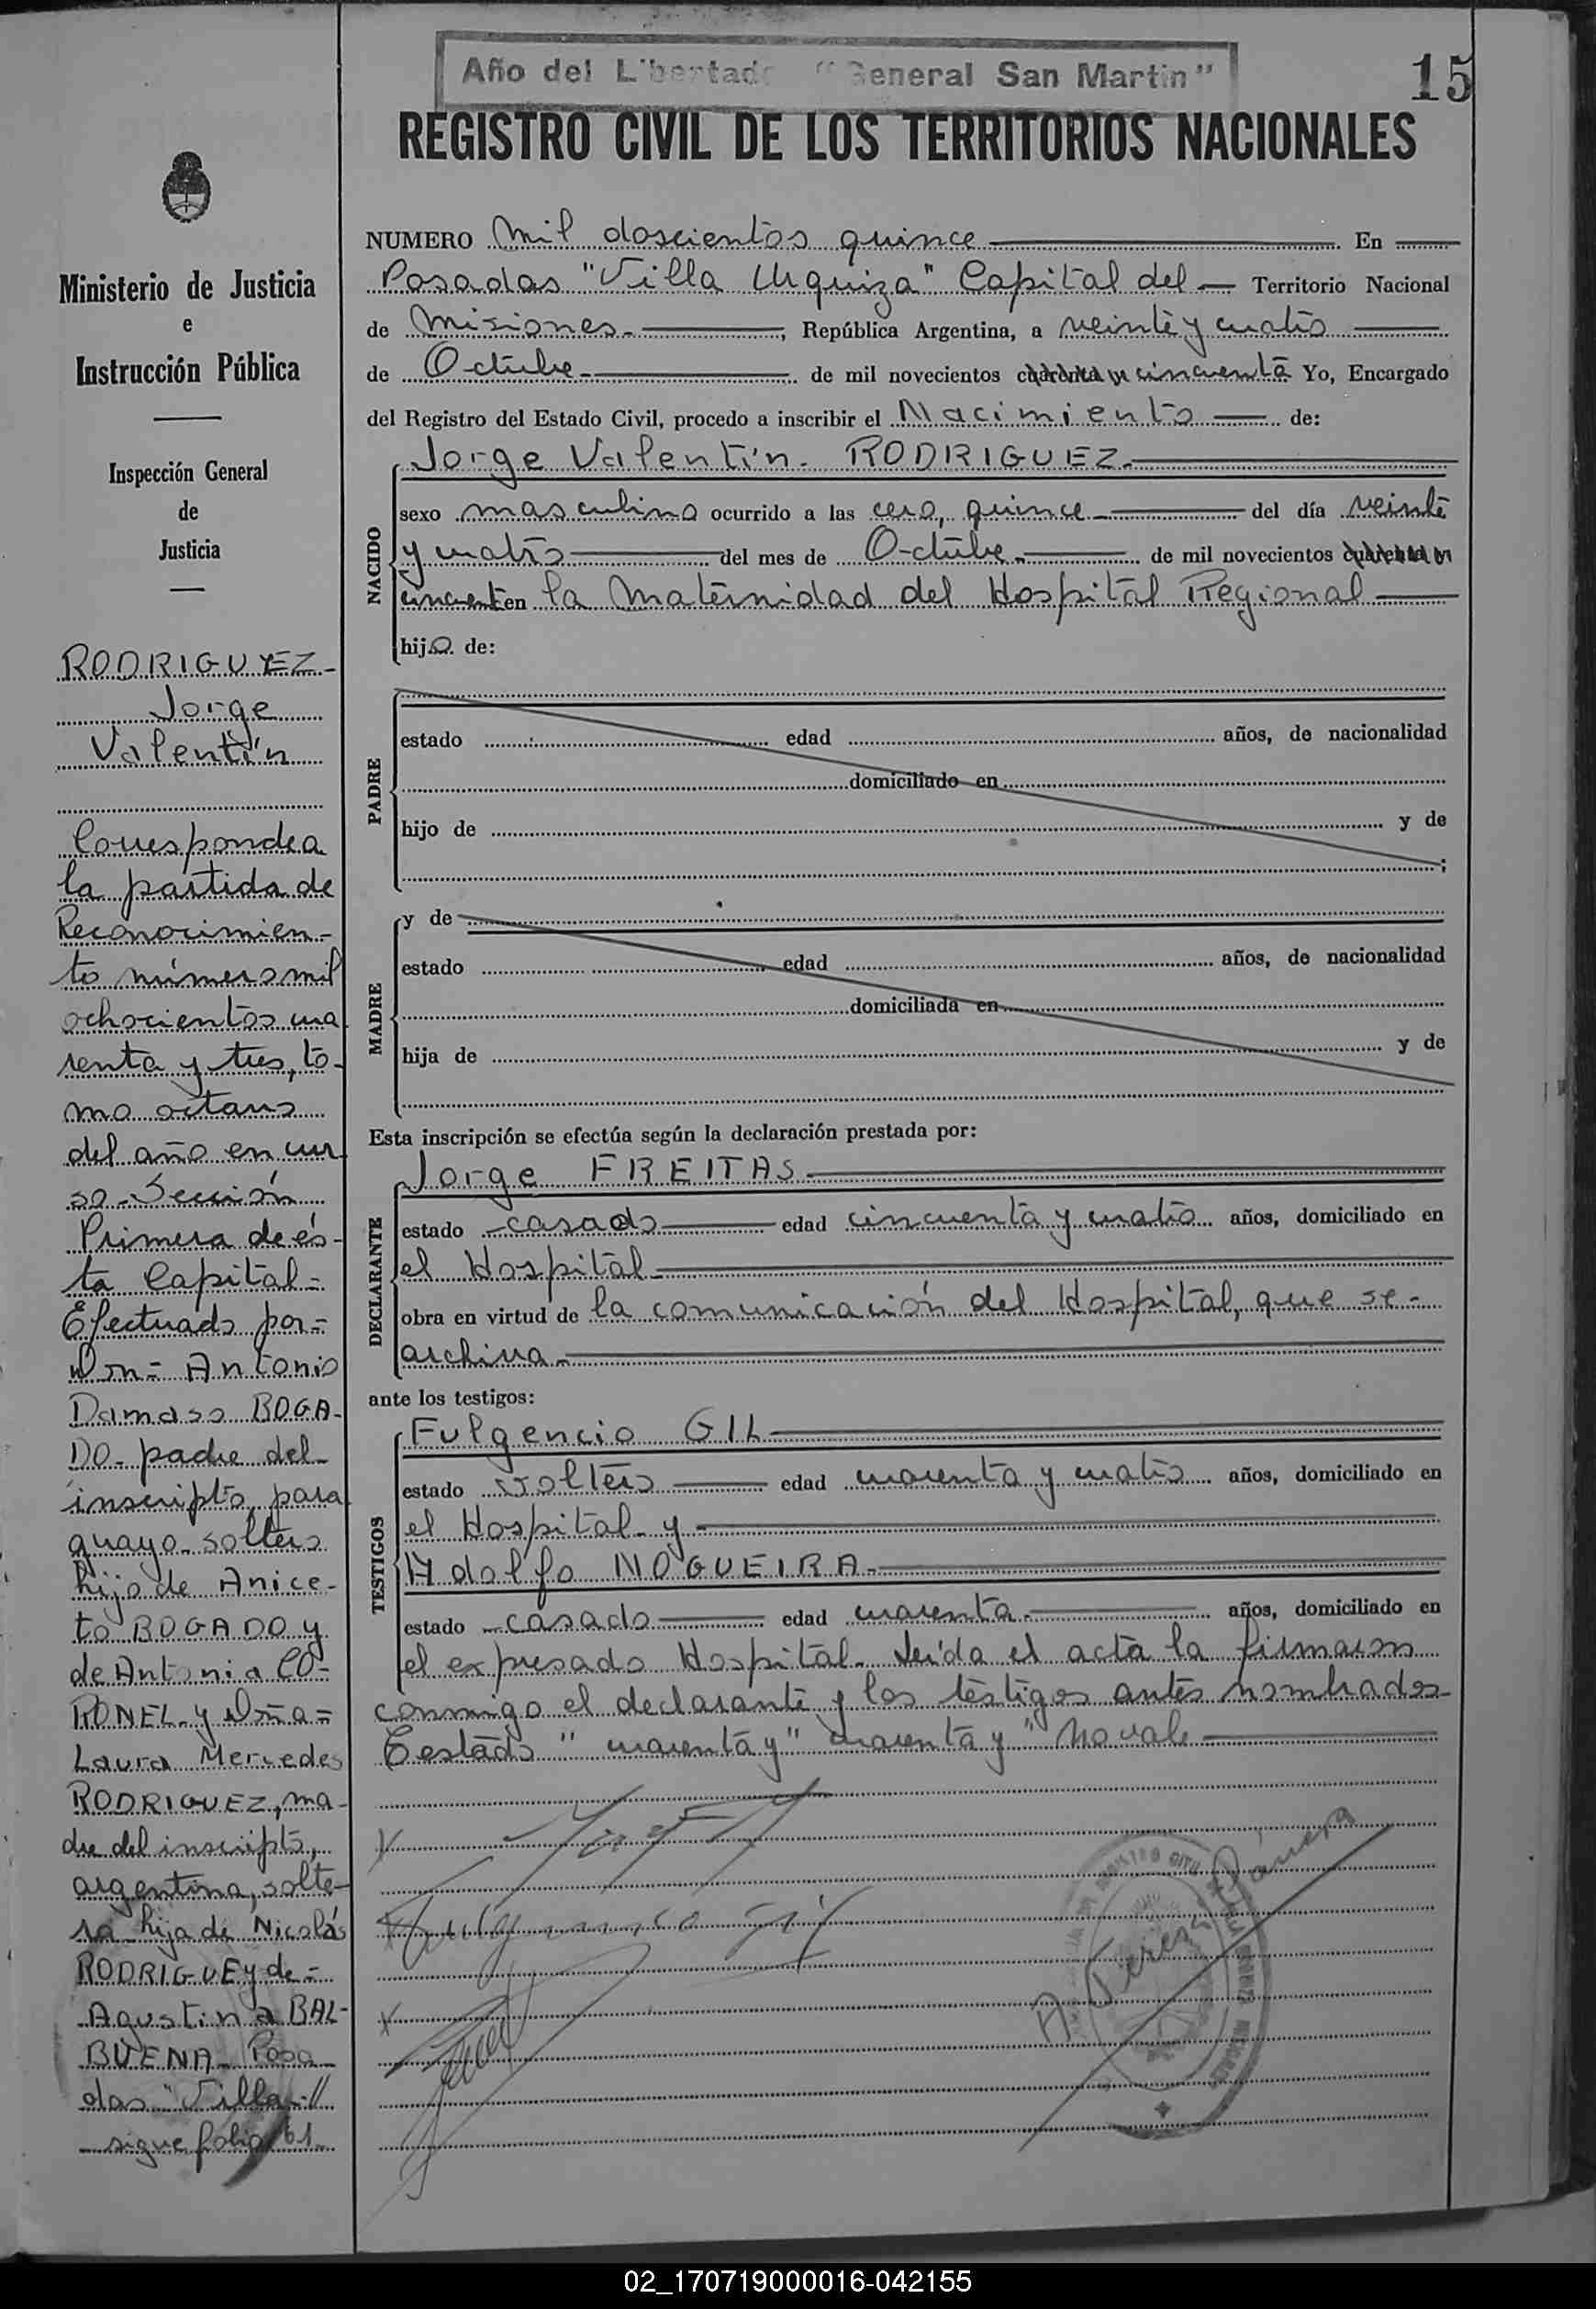 Año del Libertador "General San Martín"
15
REGISTRO CIVIL DE LOS TERRITORIOS NACIONALES
Ministerio de Justicia
e
Instrucción Pública
Inspección General
de
Justicia
RODRIGUEZ-
Jorge
Valentín
Corresponde a
la partida de
Reconocimien-
to número mil
ochocientos cua
renta y tres, to-
mo octavo
del año en cur
so - Sección
Primera de és-
ta Capital =
Efectuado por =
Don = Antonio
Damaso BOGA-
DO - padre del
inscripto, para
guayo - soltero
hijo de Anice-
to BOGADO y
de Antonia CO=
RONEL - y Doña =
Laura Mercedes
RODRIGUEZ, ma-
dre del inscripto,
argentina, solte-
ra - hija de Nicolás
RODRIGUE y de =
Agustina BAL-
BUENA - Posa
das "Villa - //
- sigue folio 61
NUMERO mil doscientos quince En
Posadas "Villa Urquiza" Capital del — Territorio Nacional
de Misiones - , República Argentina, a veinte y cuatro
de Octubre - de mil novecientos cuarenta y cincuenta Yo, Encargado
del Registro del Estado Civil, procedo a inscribir el Nacimiento — de:
NACIDO
Jorge Valentín - RODRIGUEZ -
sexo masculino ocurrido a las cero, quince - del día veinte
y cuatro del mes de Octubre - de mil novecientos cuarenta y
cincuenta en la Maternidad del Hospital Regional
hijo de:
PADRE
estado edad años, de nacionalidad
domiciliado en
hijo de y de
;
MADRE
y de
estado edad años, de nacionalidad
domiciliada en
hija de y de
Esta inscripción se efectúa según la declaración prestada por:
DECLARANTE
Jorge FREITAS
estado - casado edad cincuenta y cuatro años, domiciliado en
el Hospital -
obra en virtud de la comunicación del Hospital, que se -
archiva -
ante los testigos:
TESTIGOS
Fulgencio GIL
estado soltero edad cuarenta y cuatro años, domiciliado en
el Hospital - y -
Adolfo NOGUEIRA -
estado - casado edad cuarenta - años, domiciliado en
el expresado Hospital - Leída el acta la firmaron
conmigo el declarante y los testigos antes nombrados
Testado "cuarenta y" "cuarenta y" No vale
Fulgencio Gil